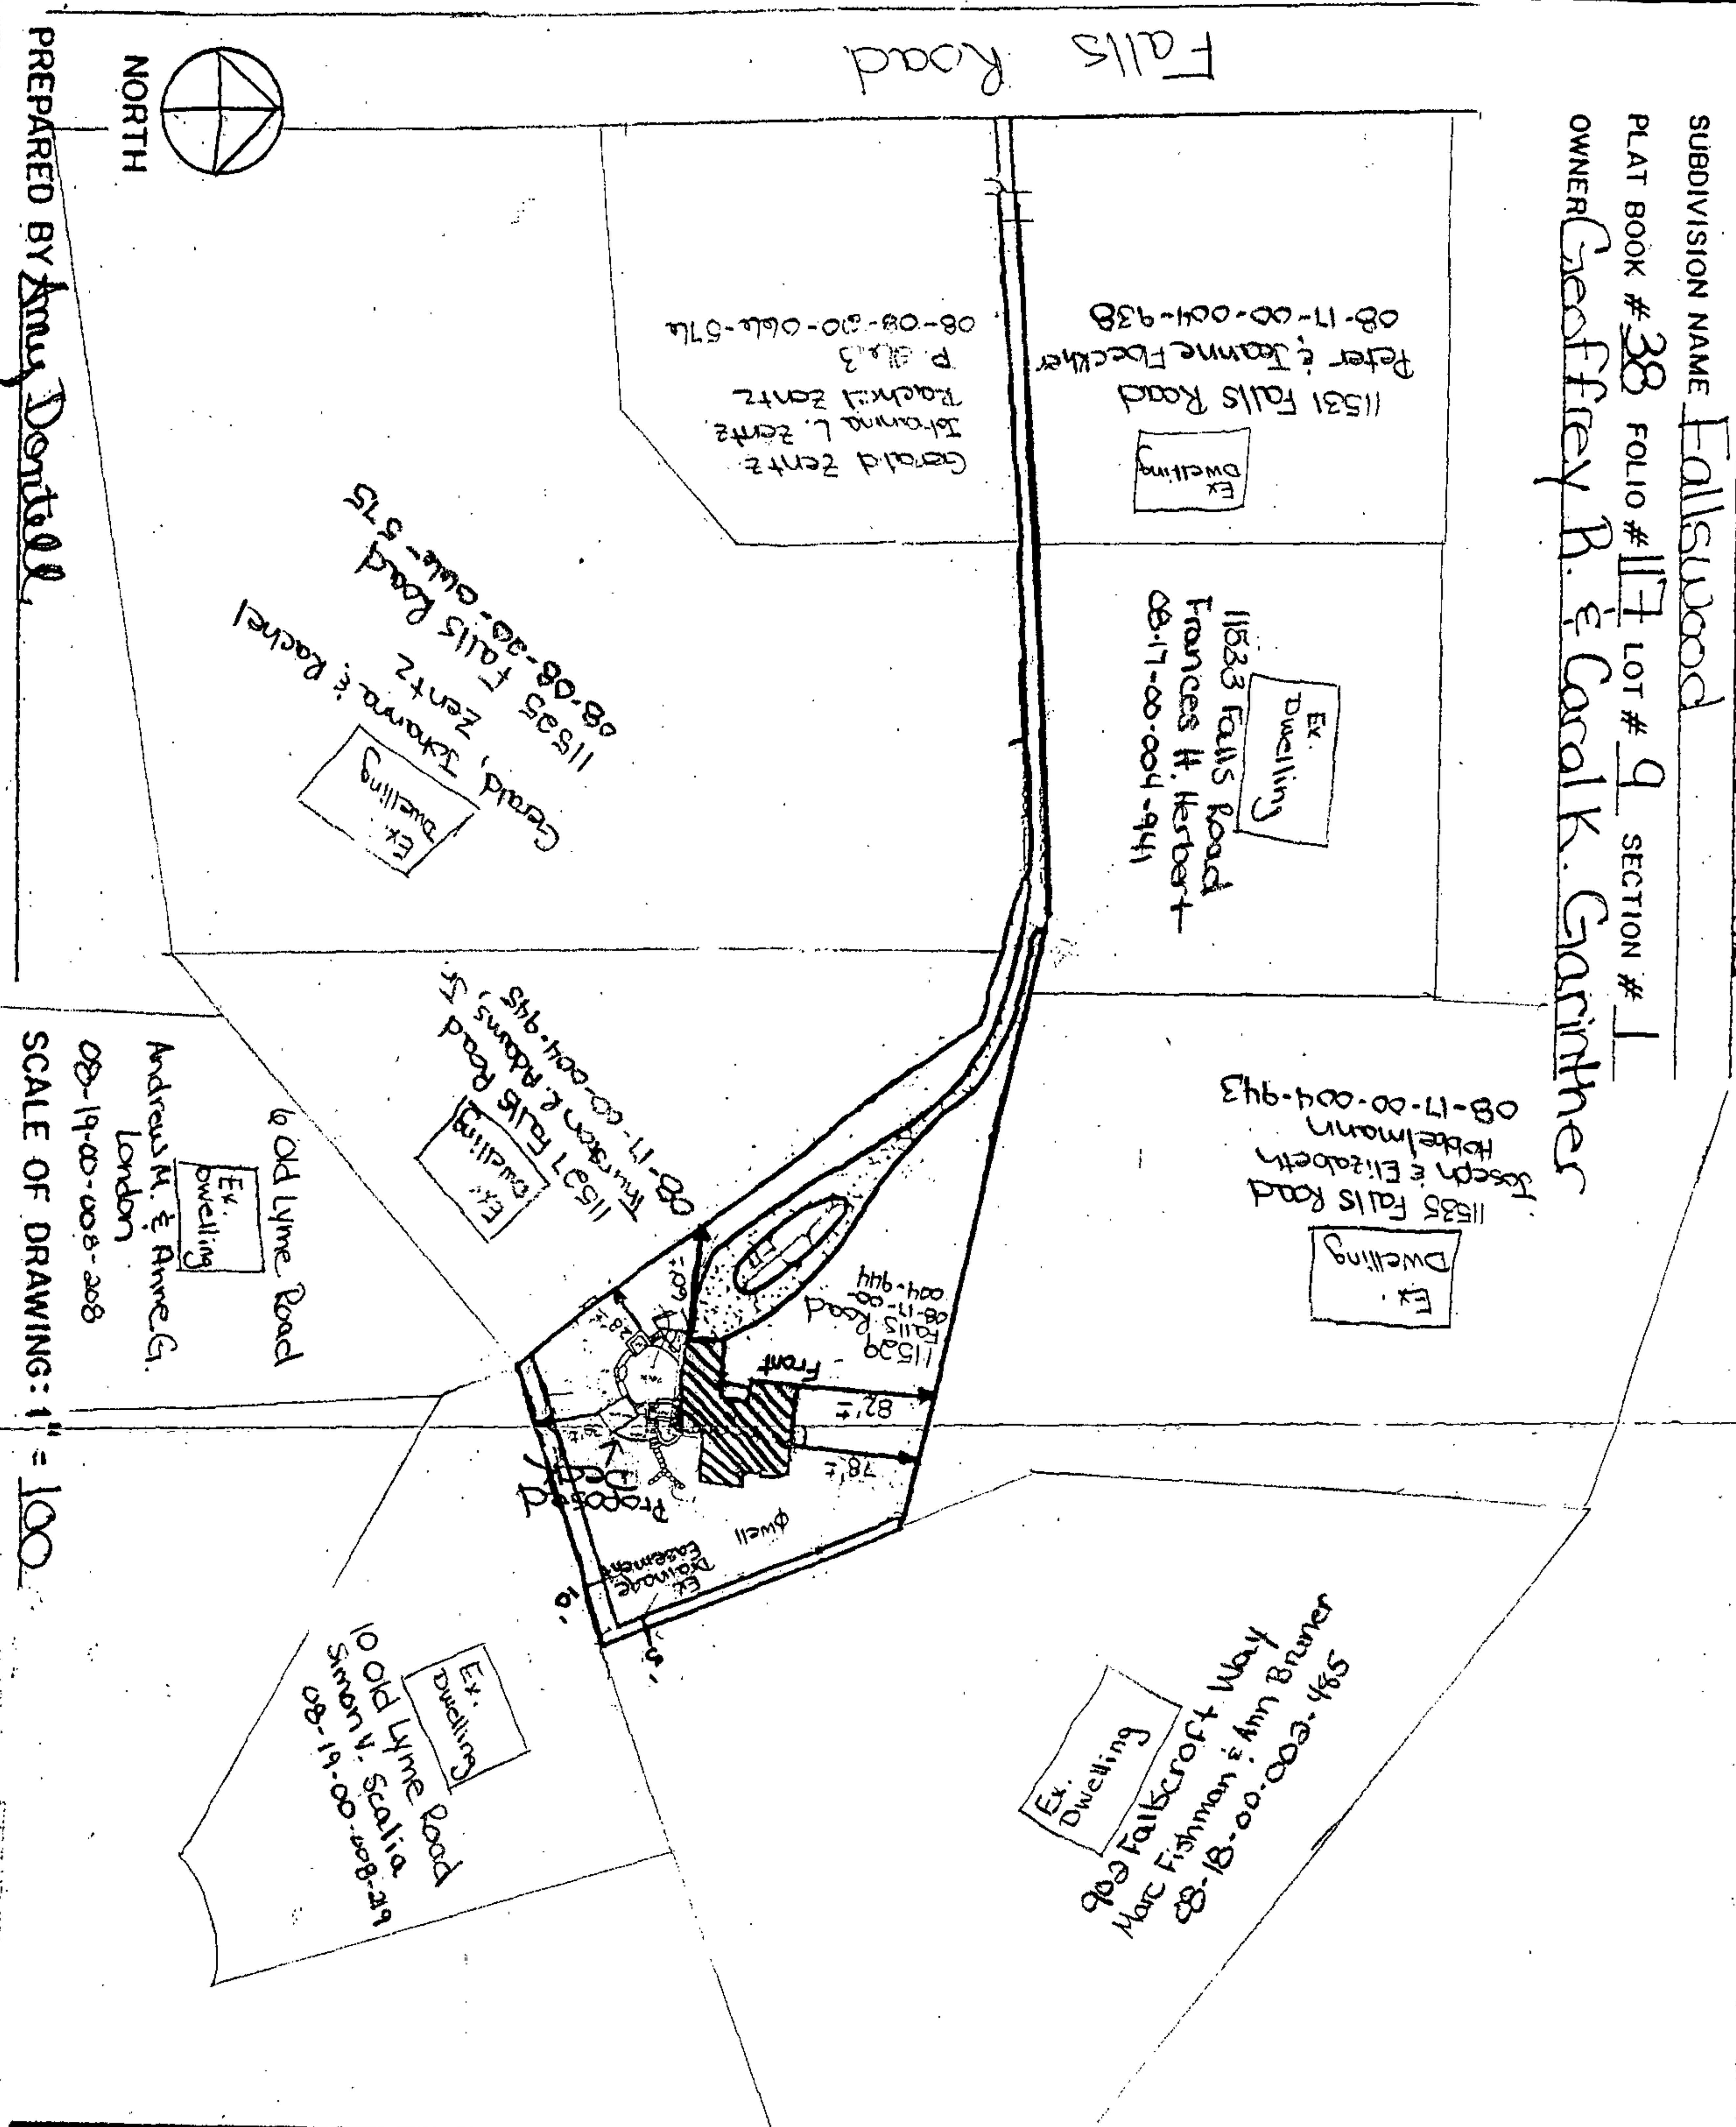 SUBDIVISION NAME Fallswood
PLAT BOOK # 38 FOLIO # 117 LOT # 9 SECTION # 1
OWNER Geoffrey R. & Carol K. Garinther
Falls Road
11531 Falls Road
Peter & Jeanne Floeckher
08-17-00-004-938
Ex
Dwelling
Gerald Zentz
Johanna L. Zentz
Rachel Zentz
08-08-20-066-576
Ex.
Dwelling
11533 Falls Road
Frances H. Herbert
08-17-00-004-941
Ex.
Dwelling
Gerald, Johanna & Rachel
Zentz
11525 Falls Road
08-08-20-066-575
Ex.
Dwelling
11535 Falls Road
Joseph & Elizabeth
Hobbelmann
08-17-00-004-943
Ex.
Dwelling
11527 Falls Road
Thurston R. Adams, Jr.
08-17-00-004-945
11529
Falls Road
08-17-00-
004-944
Front
82'±
78'±
60'±
28'±
30'±
Proposed
Ø well
Ex
Drainage
Easement
10'
5'
6 Old Lyme Road
Ex.
Dwelling
Andrew M. & Anne G.
London
08-19-00-008-208
Ex.
Dwelling
10 Old Lyme Road
Simon V. Scalia
08-19-00-008-219
Ex.
Dwelling
902 Fallscroft Way
Marc Fishman & Ann Bruner
08-18-00-002-485
NORTH
PREPARED BY Amy Dontell
SCALE OF DRAWING: 1" = 100